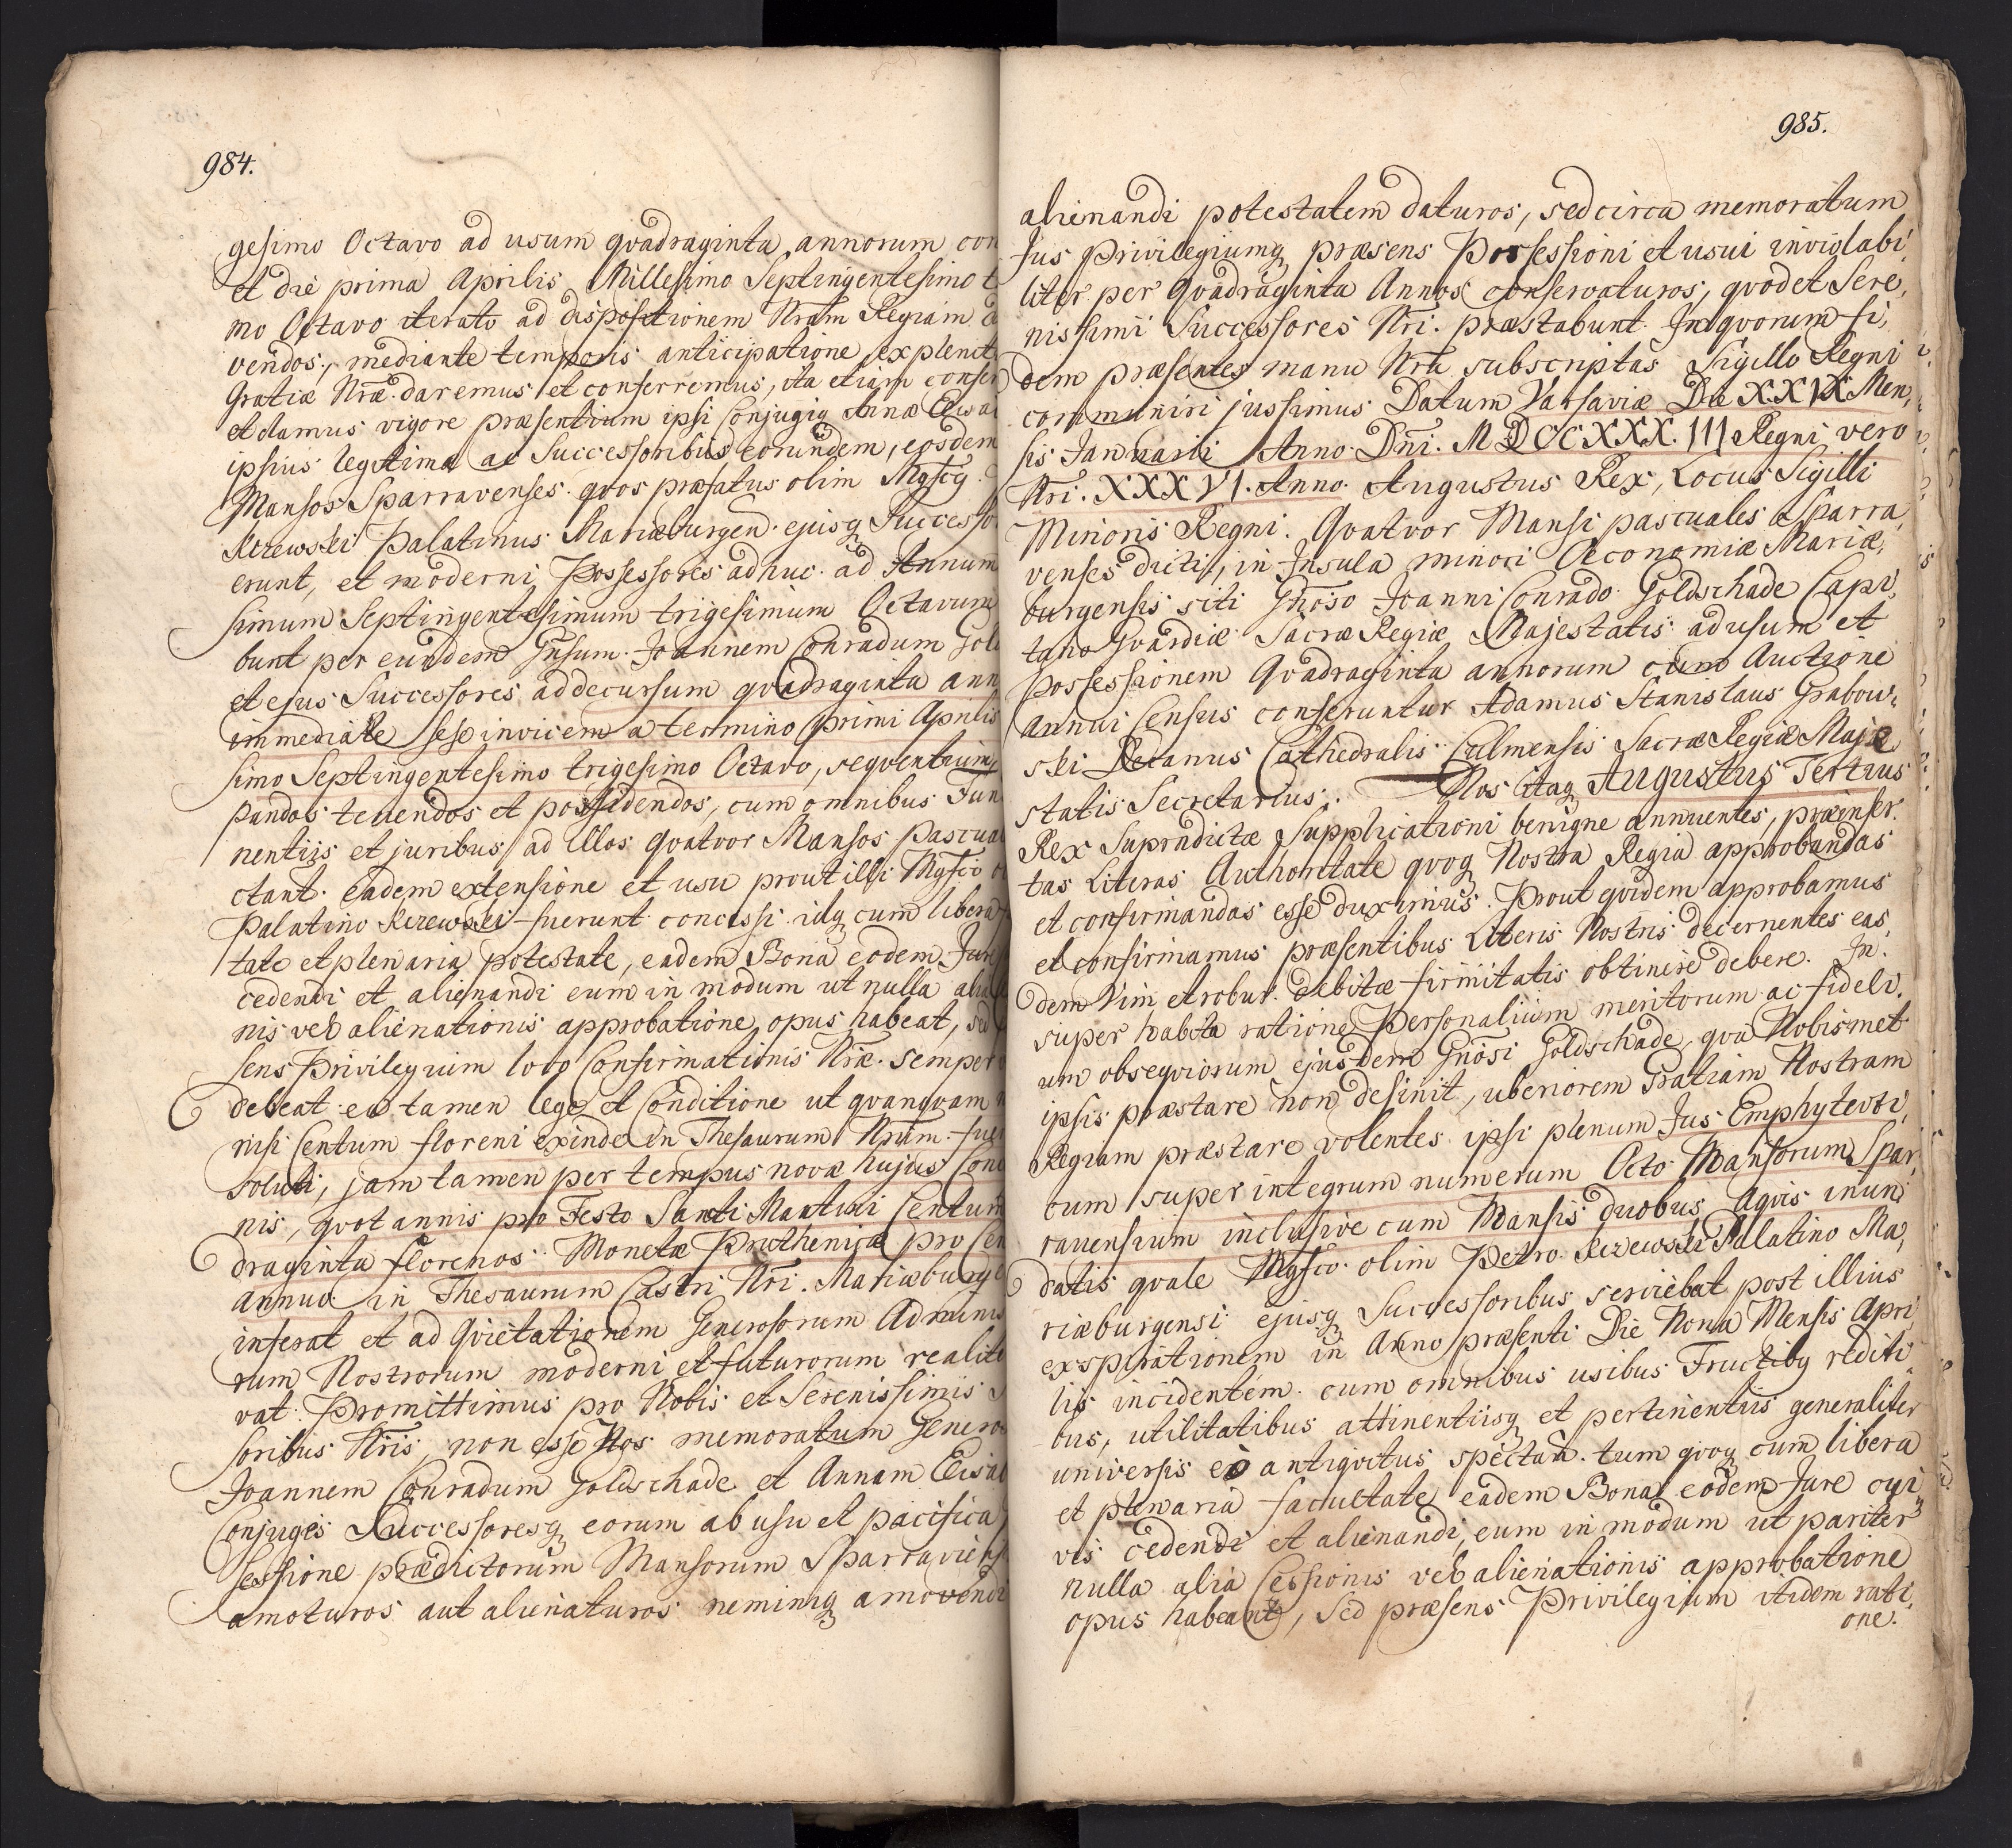 984.
gesimo Octavo ad usum qvadraginta annorum con
et die prima Aprilis Millesimo Septingentesimo t
mo Octavo iterato ad dispositionem Nram Regiam
vendos, mediante temporis anticipatione explenit
Gratiæ Nræ. daremus et conferremus, ita etiam confer
et damus vigore præsentium ipsi Conjugiq Annæ
ipsius legitimæ ac Successoribus eorundem, eosdem
Mansos Sparravenses qvos præfatus olim Mgfcq
Kczewski Palatinus Mariæburgen. ejusq Successo
erunt, et moderni Possessores adhuc ad Annum
simum Septingentesimum trigesimum Octavum
bunt per eundem Gnsum. Joannem Conradum Gol
et ejus Successores ad decursum qvadraginta ann
immediate sese invicem a termino primi Aprilis
simo Septingentesimo trigesimo Octavo, seqventium,
pandos tenendos et possidendos, cum omnibus
nentijs et juribus ad illos qvatvor Mansos Pascua
ctant. eadem extensione et usu prout illi Mgfco
Palatino Kczewski fuerunt concessi idq cum libera
tate et plenaria potestate, eadem Bona eodem Jure
cedendi et alienandi eum in modum ut nulla alia
nis vel alienationis approbatione opus habeat,
sens Privilegium loco Confirmationis Nræ. semper
debeat ea tamen lege et Conditione ut qvanqvam
nisi Centum floreni exinde in Thesaurum Nrum. fue
soluti, jam tamen per tempus novæ hujus Con
nis, qvot annis pro Festo Sancti Martini Centum
draginta florenos Monetæ Pruthenicæ pro Cen
annuo in Thesaurum Castri Nri. Mariæburge
inferat et ad Qvietationem Generosorum Adminis
rum Nostrorum moderni et futurorum realite
vat. Promittimus pro Nobis et Serenissimis
soribus Nris, non esse Nos memoratum Genero
Joannem Conradum Goldschade et Annam
Conjuges Successoresq eorum ab usu et pacifica
sessione prædictorum Mansorum Sparravien
amoturos aut alienaturos neminiq amovendi
985.
alienandi potestatem daturos, sed circa memoratum
Jus Privilegiumq præsens Possessioni et usui inviolabi,
liter per Qvadraginta Annos conservaturos, qvod et Sere,
nissimi Successores Nri. præstabunt. In qvorum fi,
dem præsentes manu Nra subscriptas Sigillo Regni
communiri jussimus Datum Varsaviæ Die XXIX Men,
sis Januarii Anno Dni. MDCCXXX.III Regni vero
Nri. XXXVI. Anno. Augustus Rex, Locus Sigilli
Minoris Regni. Qvatvor Mansi pascuales Sparra,
venses dicti, in Insula minori Oeconomiæ Mariæ,
burgensis siti Gnoso Joanni Conrado Goldschade Capi,
tano Gvardiæ Sacræ Regiæ Majestatis ad usum et
possessionem Qvadraginta annorum cum Auctione
annui Census conferuntur Adamus Stanislaus Grabow,
ski Decanus Cathedralis Culmensis Sacræ Regiæ Maje
statis Secretarius. Nos itaq Augustus Tertius
Rex Supradictæ Supplicationi benigne annuentes, præinser.
tas Literas Authoritate qvoq Nostra Regia approbandas
et confirmandas esse duximus. Prout qvidem approbamus
et confirmamus præsentibus Literis Nostris decernentes eas,
dem Vim et robur debitæ firmitatis obtinere debere. In.
super habita ratione Personalium meritorum ac fideli.
um obseqviorum ejusdem Gnosi Goldschade, qvæ Nobismet
ipsis præstare non desinit, uberiorem Gratiam Nostram
Regiam præstare volentes ipsi plenum Jus Emphytevti,
cum super integrum numerum Octo Mansorum Spar,
ravensium inclusive cum Mansis duobus Aqvis inun,
datis qvale Mgfco. olim Petro Kczewski Palatino Ma,
riæburgensi ejusq Successoribus serviebat post illius
exspirationem in Anno præsenti Die Nona Mensis Apri,
lis incidentem. cum omnibus usibus Fructibq rediti,
bus, utilitatibus attinentiisq et pertinentiis generaliter
universis eo antiqvitus spectan. tum qvoq cum libera
et plenaria facultate eadem Bona eodem Jure cui
vis cedendi et alienandi, eum in modum ut pariter
nulla alia Cessionis vel alienationis approbatione
opus habeant, Sed præsens Privilegium itidem rati,
one.